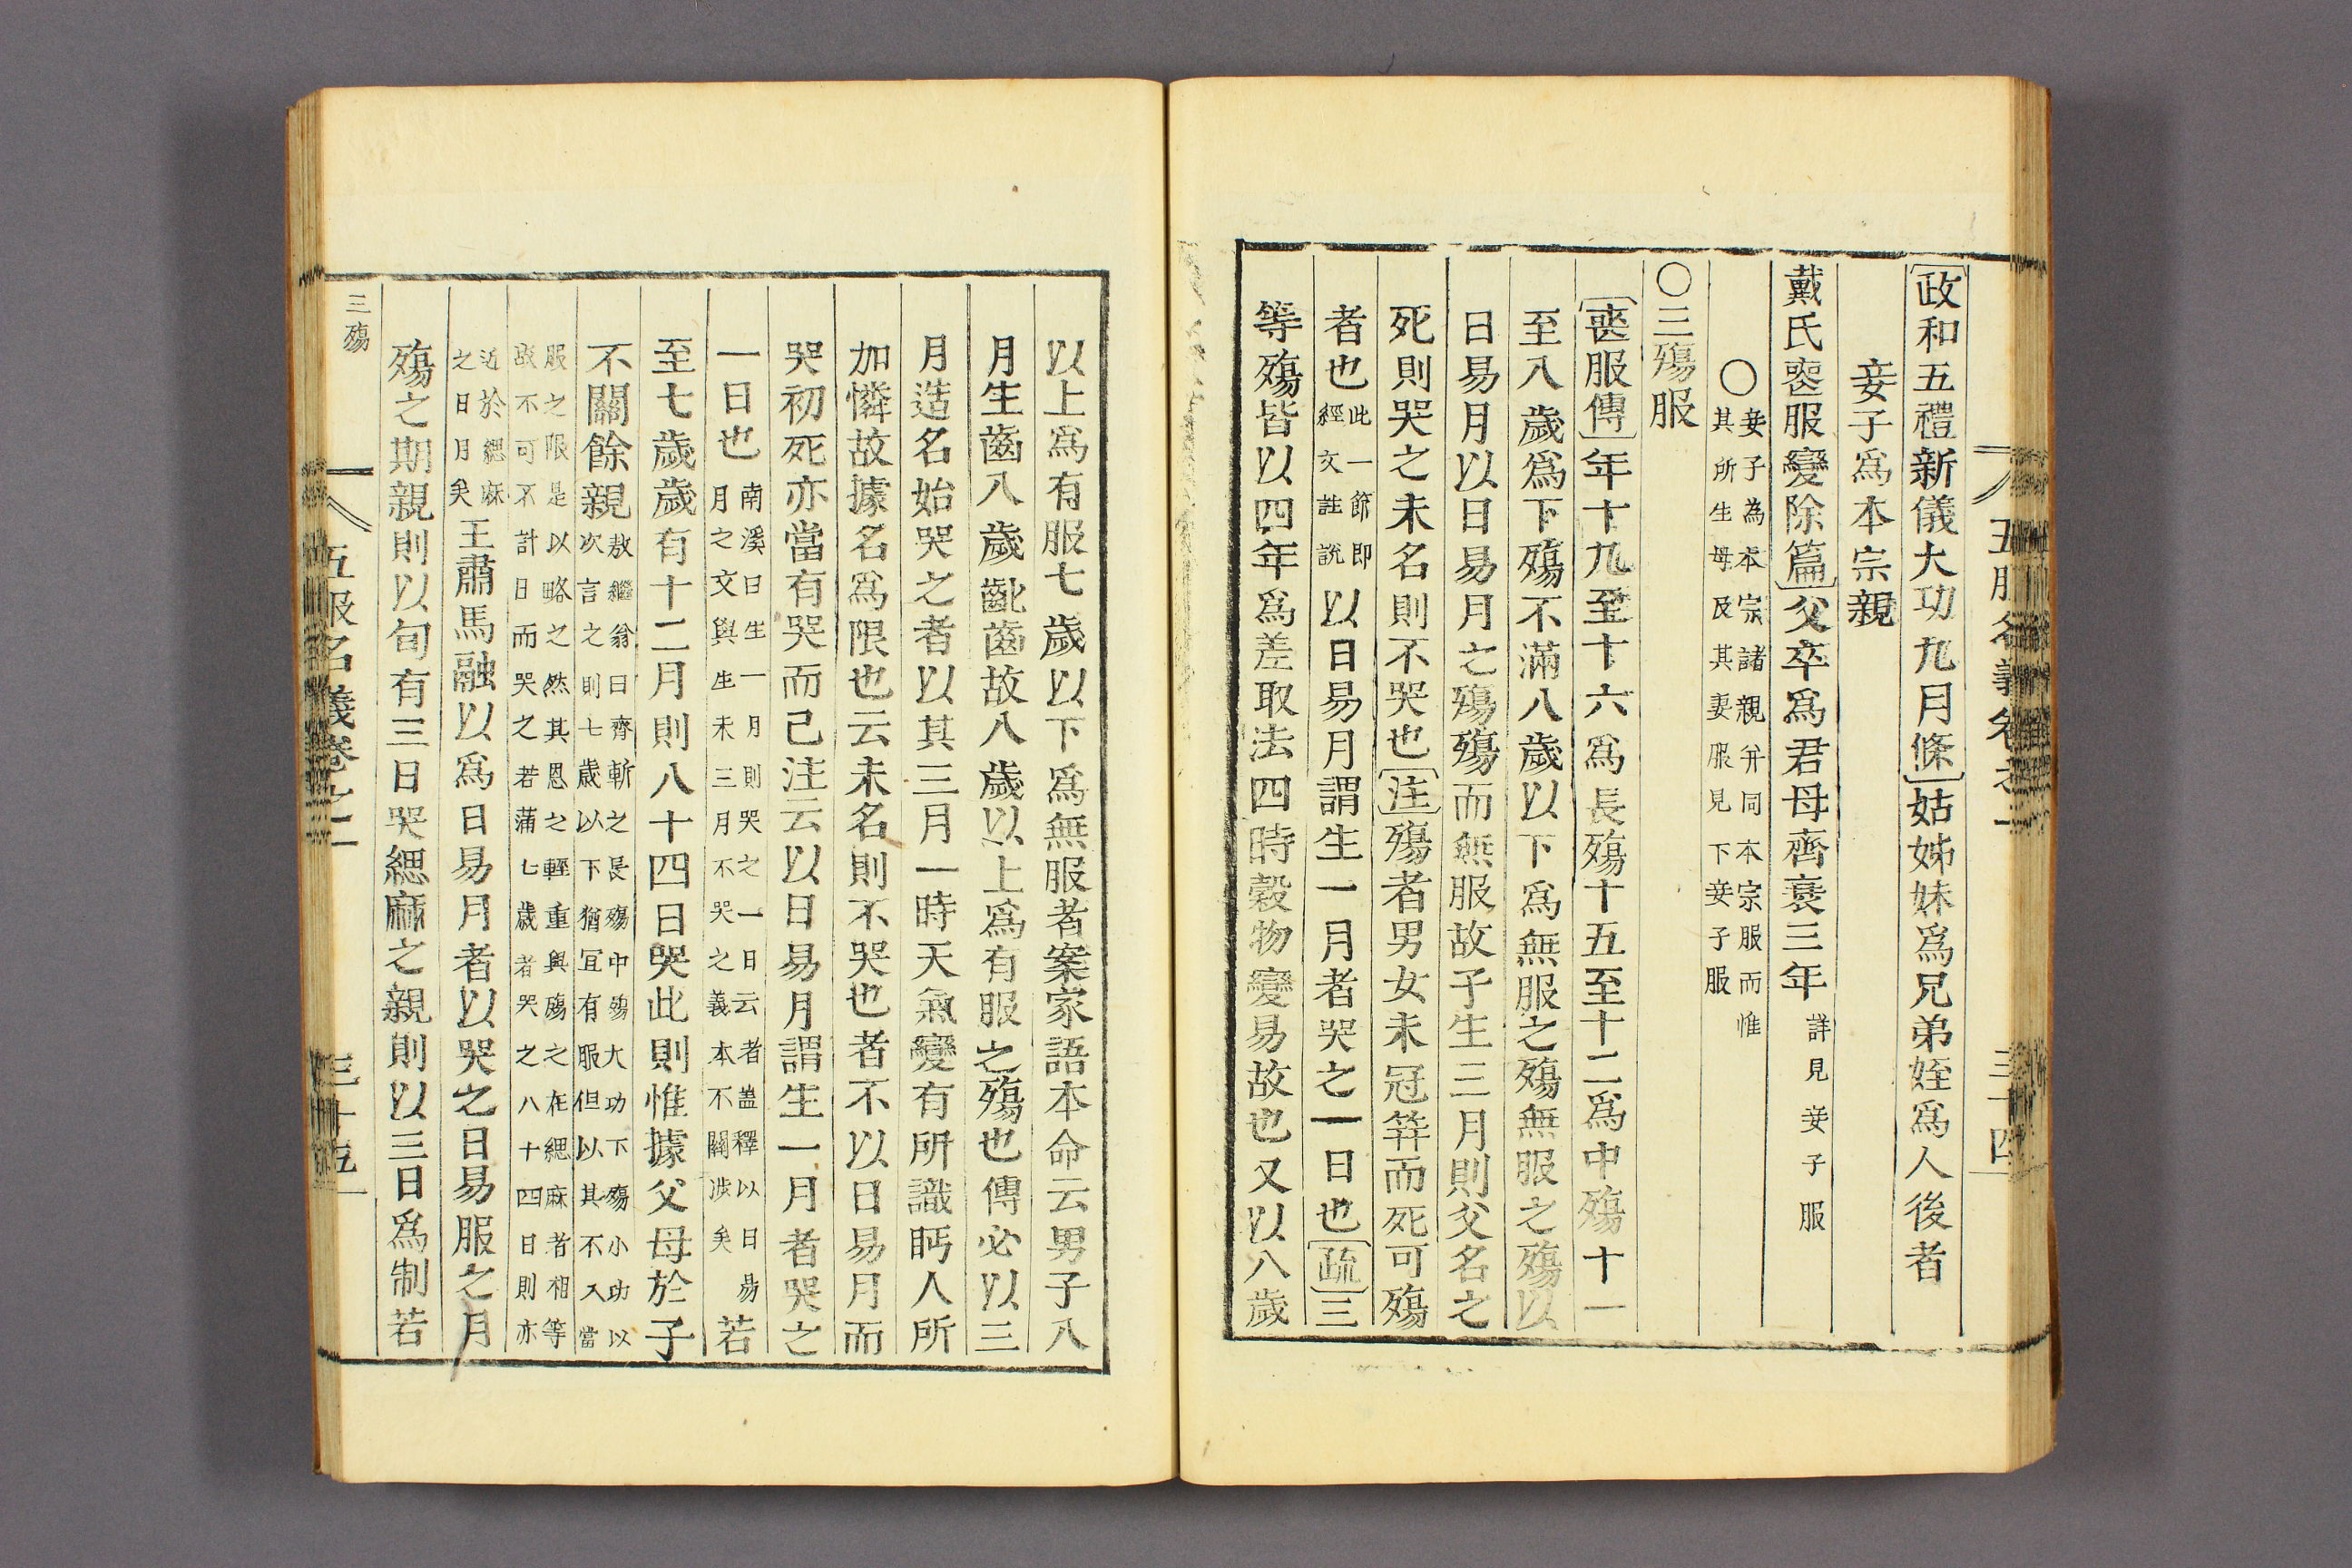 五服名義卷之二
三十四
政和五禮新儀大功九月條姑姊妹爲兄弟姪爲人後者
妾子爲本宗親
戴氏喪服變除篇父卒爲君母齊衰三年詳見妾子服
○妾子為本宗諸親并同本宗服而惟
其所生母及其妻服見下妾子服
○三殤服
喪服傳年十九至十六爲長殤十五至十二爲中殤十一
至八歲爲下殤不滿八歲以下爲無服之殤無服之殤以
日易月以日易月之殤殤而無服故子生三月則父名之
死則哭之未名則不哭也注殤者男女未冠笄而死可殤
者也此一節即經文註說以日易月謂生一月者哭之一日也疏三
等殤皆以四年爲差取法四時穀物變易故也又以八歲
以上爲有服七歲以下爲無服者案家語本命云男子八
月生齒八歲齔齒故八歲以上爲有服之殤也傳必以三
月造名始哭之者以其三月一時天氣變有所識眄人所
加憐故據名爲限也云未名則不哭也者不以日易月而
哭初死亦當有哭而已注云以日易月謂生一月者哭之
一日也南溪曰生一月則哭之一日云者蓋釋以日易月之文與生未三月不哭之義本不關涉矣若
至七歲歲有十二月則八十四日哭此則惟據父母於子
不關餘親敖繼翁曰齊斬之長殤中殤大功下殤小功以次言之則七歲以下猶冝有服但以其不入當
服之限是以略之然其恩之輕重與殤之在緦麻者相等故不可不計日而哭之若滿七歲者哭之八十四日則亦
近於緦麻之日月矣王肅馬融以爲日易月者以哭之日易服之月
殤之期親則以旬有三日哭緦麻之親則以三日爲制若
三殤
五服名義卷之二
三十五